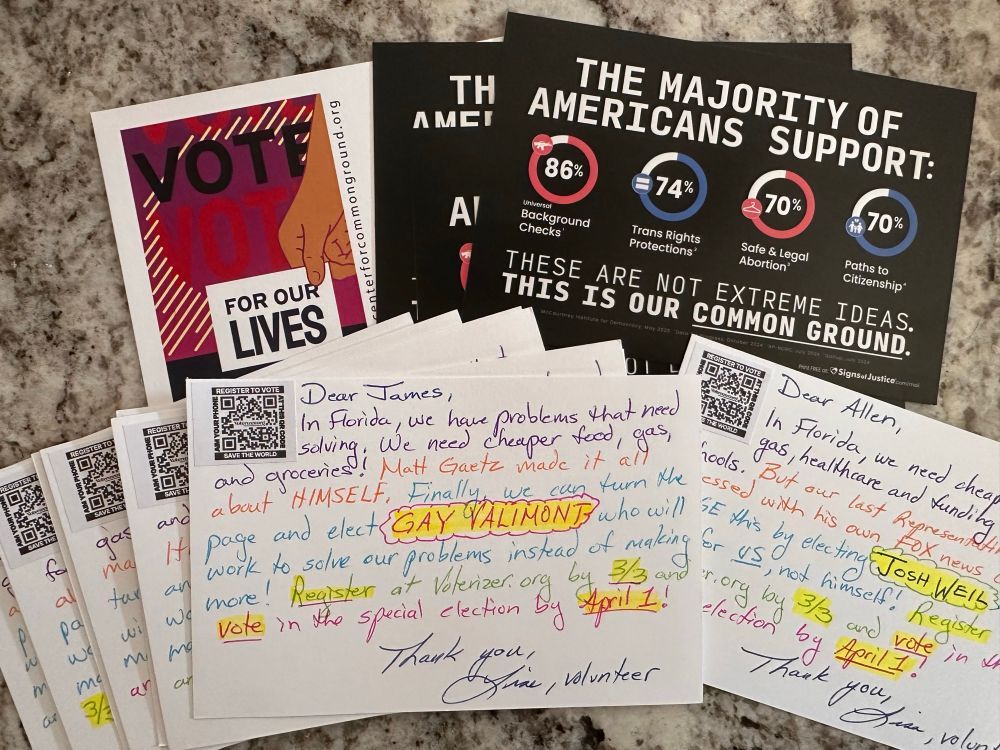 VOTE
VOT
FOR OUR
LIVES
centerforcommonground.org
TH
AMER
A
THE MAJORITY OF
AMERICANS SUPPORT:
86%
Universal
Background
Checks¹
74%
Trans Rights
Protections²
70%
Safe & Legal
Abortion³
70%
Paths to
Citizenship⁴
THESE ARE NOT EXTREME IDEAS.
THIS IS OUR COMMON GROUND.
Print FREE at: SignsofJustice.com/mail
REGISTER TO VOTE
SAVE THE WORLD
Dear James,
In Florida, we have problems that need
solving. We need cheaper food, gas,
and groceries! Matt Gaetz made it all
about HIMSELF. Finally, we can turn the
page and elect GAY VALIMONT who will
work to solve our problems instead of making
more! Register at Voterizer.org by 3/3 and
vote in the special election by April 1!
Thank you,
Lisa, volunteer
REGISTER TO VOTE
SAVE THE WORLD
Dear Allen,
In Florida, we need cheap
gas, healthcare and funding
hools. But our last Representati
essed with his own FOX news
GE this by electing JOSH WEIL
for us, not himself! Register
er.org by 3/3 and vote in th
election by April 1!
Thank you,
Lisa, volun
REGISTER
SAVE TH
and
REGISTER TO
SAVE THE
gas
3/3